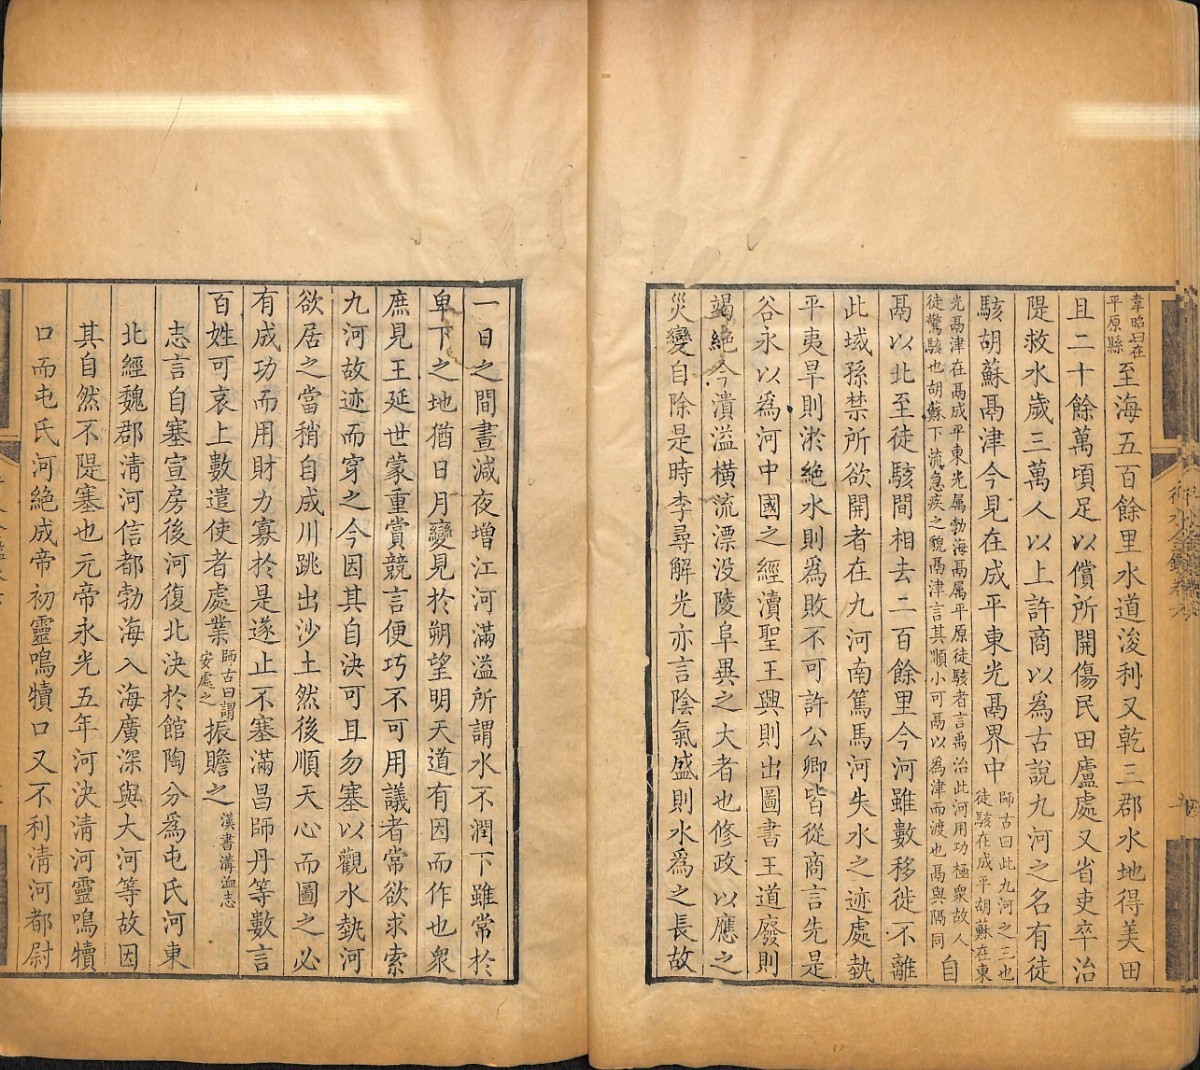 韋昭曰在平原縣至海五百餘里水道浚利又乾三郡水地得美田
且二十餘萬頃足以償所開傷民田廬處又省吏卒治
隄救水歲三萬人以上許商以為古說九河之名有徒
駭胡蘇鬲津今見在成平東光鬲界中師古曰此九河之三也徒駭在成平胡蘇在東
光鬲津在鬲成平東光属勃海鬲属平原徒駭者言禹治此河用功極衆故人徒驚駭也胡蘇下流急疾之貌鬲津言其䧏小可鬲以為津而渡也鬲與隔同自
鬲以北至徒駭間相去二百餘里今河雖數移徙不離
此域孫禁所欲開者在九河南篤馬河失水之迹處埶
平夷旱則淤絶水則為敗不可許公卿皆從商言先是
谷永以為河中國之經瀆聖王興則出圖書王道廢則
竭絶今潰溢橫流漂没陵阜異之大者也修政以應之
災變自除是時李尋解光亦言陰氣盛則水為之長故
一日之間晝減夜增江河滿溢所謂水不潤下雖常於
卑下之地猶日月變見於朔望明天道有因而作也衆
庶見王延世蒙重賞競言便巧不可用議者常欲求索
九河故迹而穿之今因其自決可且勿塞以觀水埶河
欲居之當稍自成川跳出沙土然後順天心而圖之必
有成功而用財力寡於是遂止不塞滿昌師丹等數言
百姓可哀上數遣使者處業師古曰謂安處之振贍之漢書溝洫志
志言自塞宣房後河復北決於館陶分為屯氏河東
北經魏郡清河信都勃海入海廣深與大河等故因
其自然不隄塞也元帝永光五年河決清河靈鳴犢
口而屯氏河絶成帝初靈鳴犢口又不利清河都尉